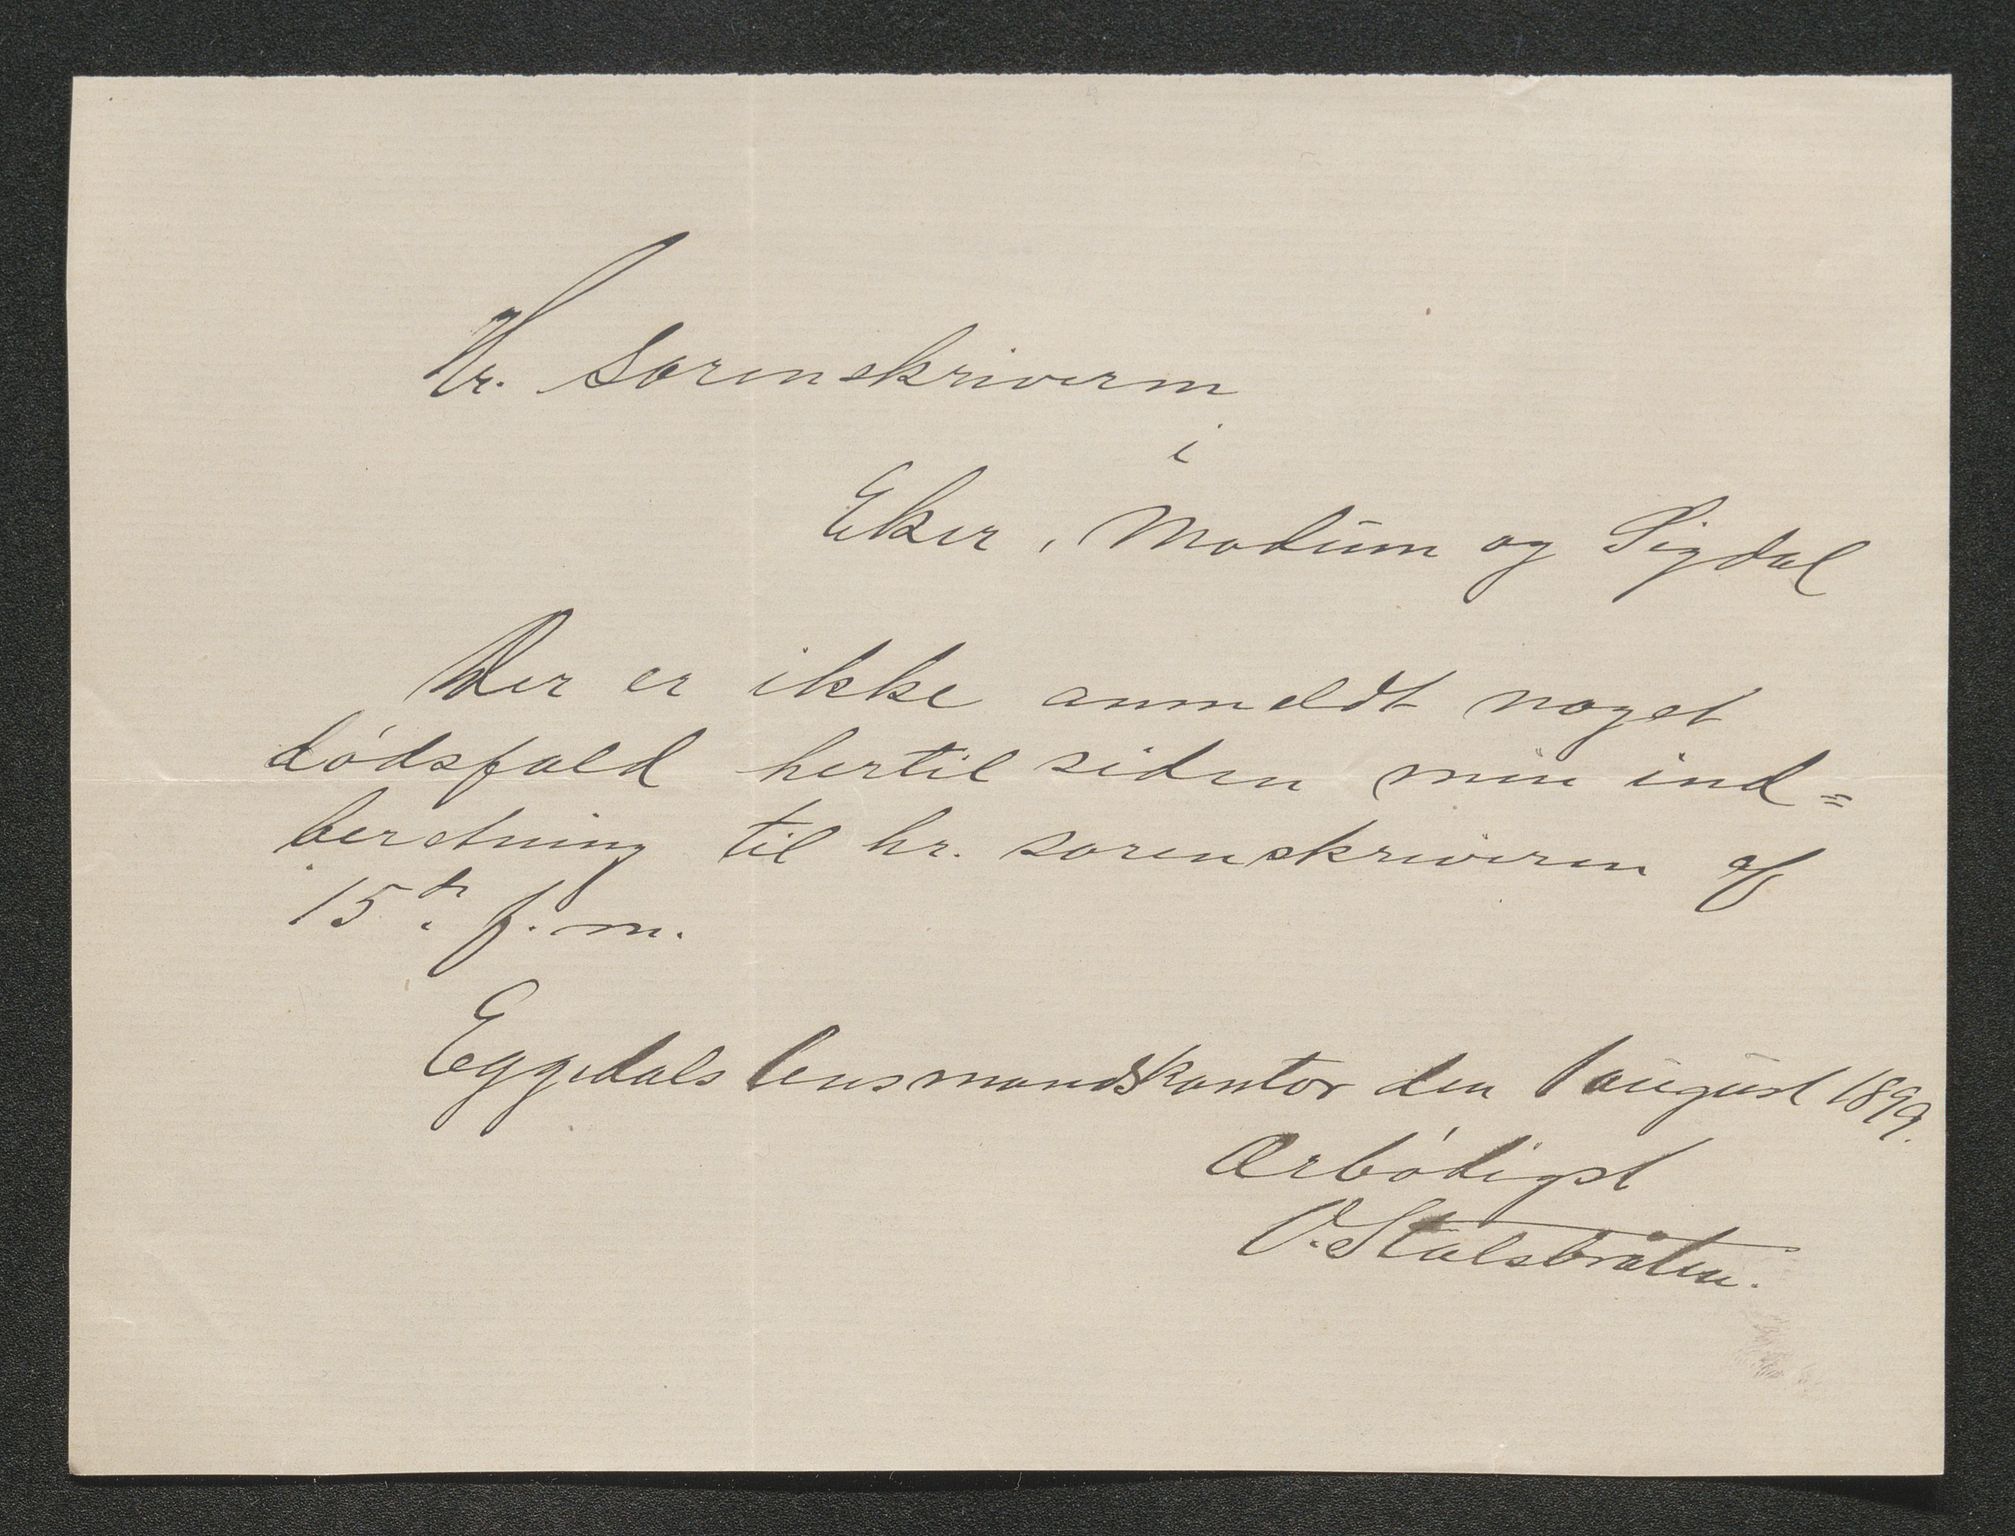 Hr. sorenskriveren
i
Eker, Modum og Sigdal
Der er ikke anmeldt noget
dødsfald hertil siden min ind=
beretning til hr. sorenskriveren af
15de. f. m.
Eggedals lensmandskontor den 1 august 1899.
Ærbødigst
O. Stalsbråten.